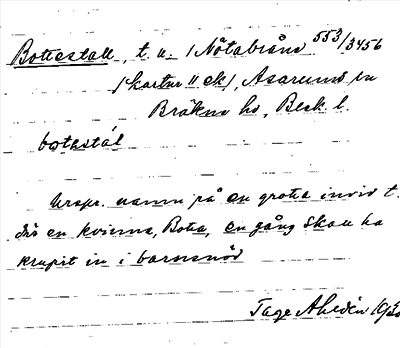 Bottestall, t. u. (Nötabråne 553/3456
(kartur 11 ek), Asarums sn
Bräkne hd, Blek. l.
botestál
Urspr. namn på en grotta invid t.
där en kvinna, Bota, en gång skall ha
krupit in i barnsnöd
Tage Ahldén 193